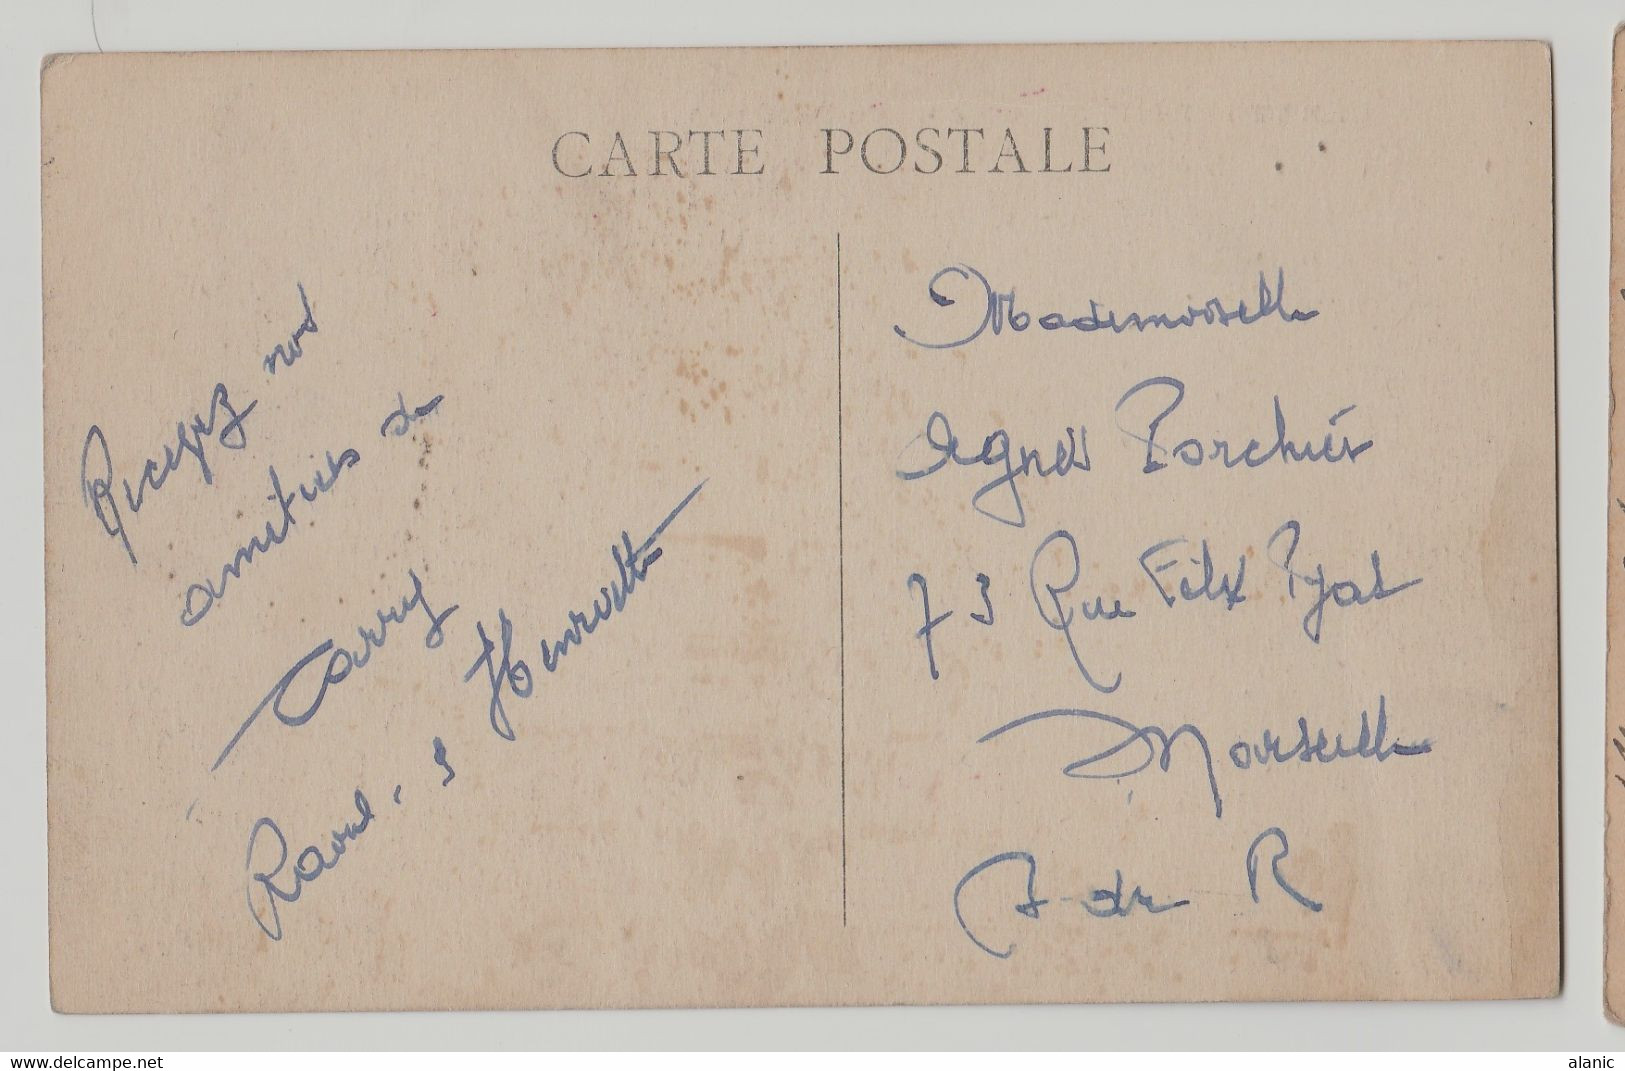 CARTE POSTALE
Recevez nos
amitiés de
Carry
Raoul - Henriette
Mademoiselle
Agnès Porchier
73 Rue Félix Pyat
Marseille
B. de R
www.delcampe.net
alanic